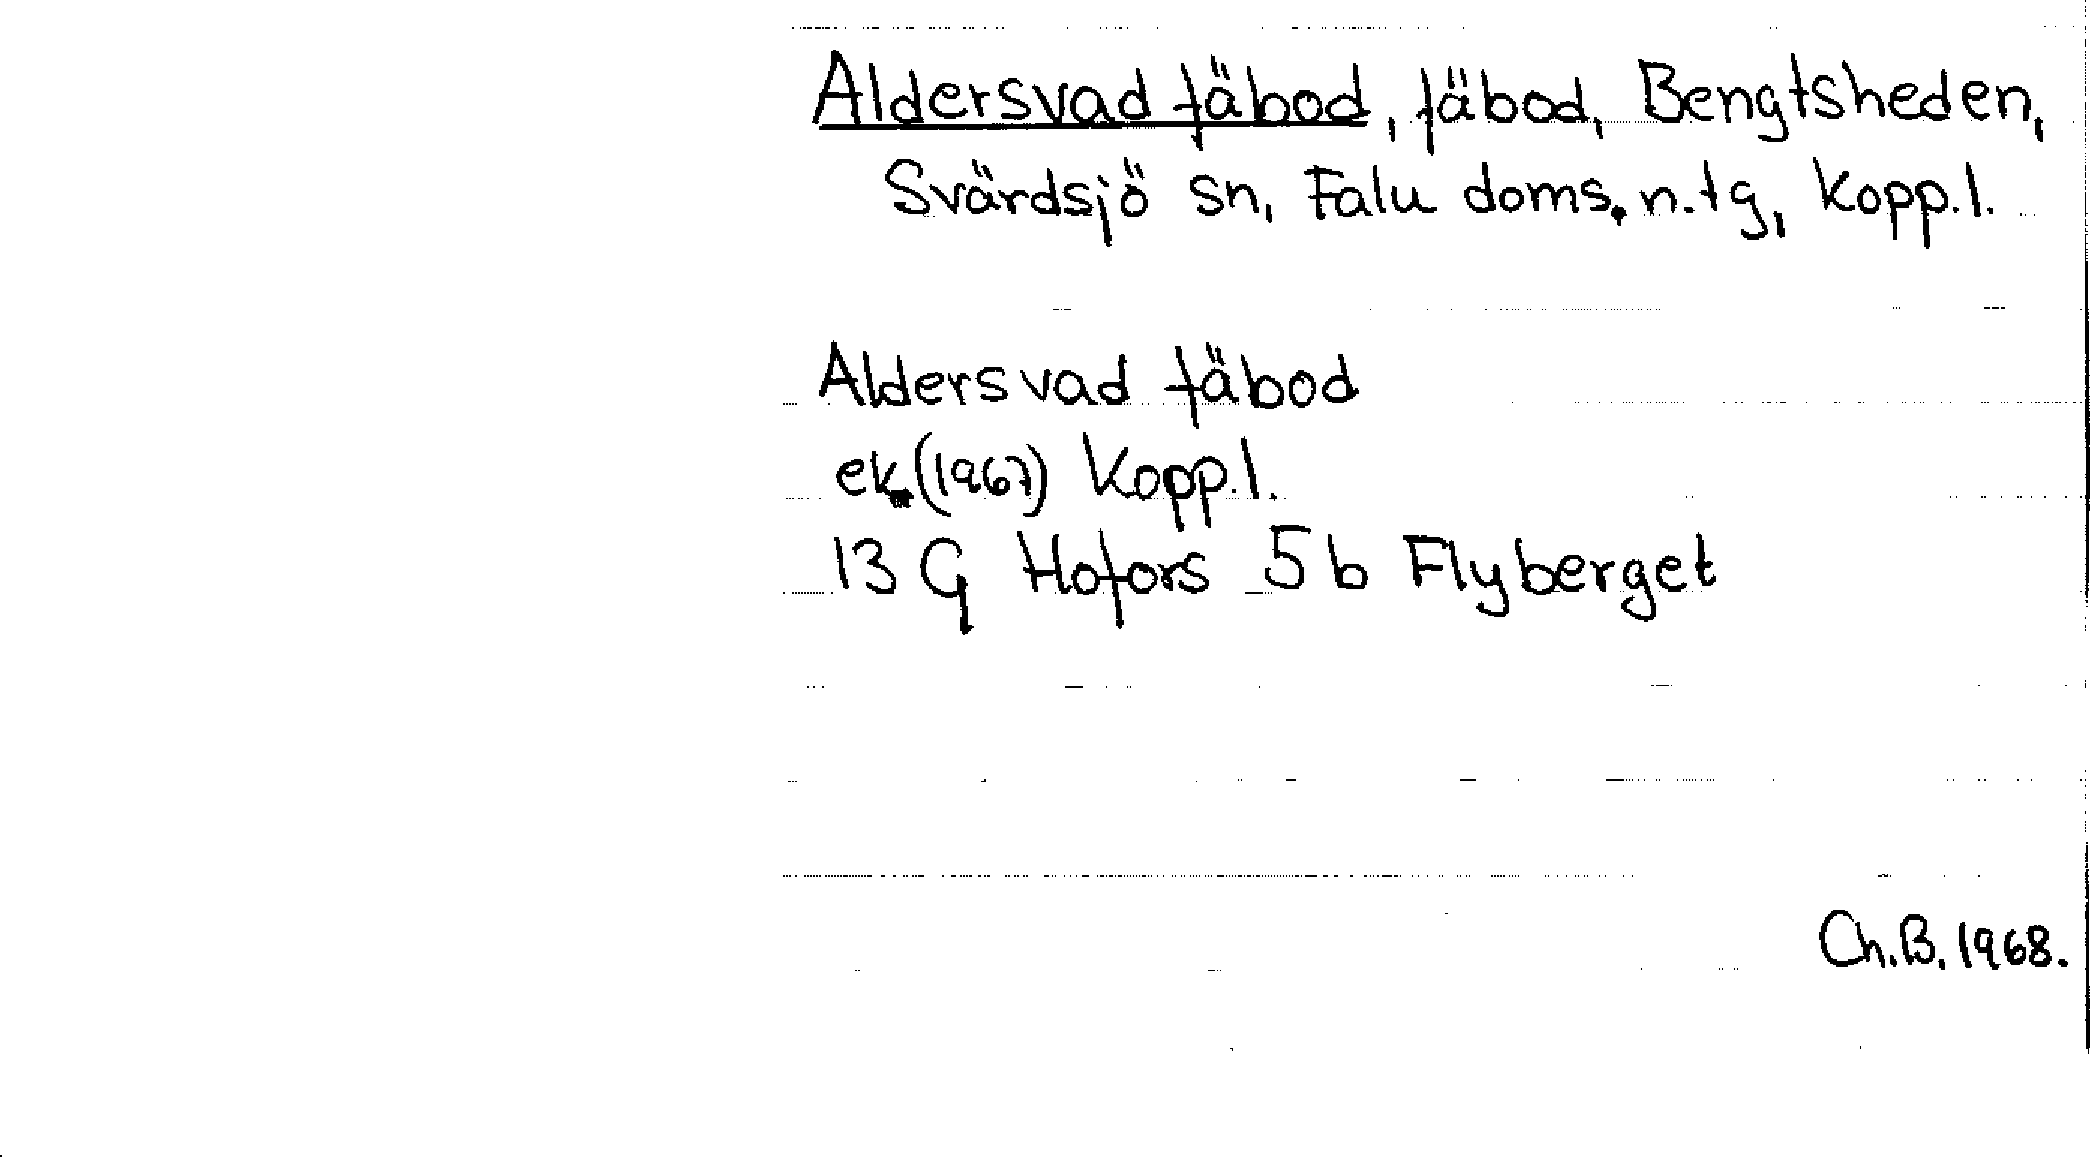 Aldersvad fäbod, fäbod, Bengtsheden,
Svärdsjö sn, Falu doms. n. tg, Kopp. l.
Aldersvad fäbod
ek. (1967) Kopp. l.
13 G Hofors 5 b Flyberget
Ch. B. 1968.